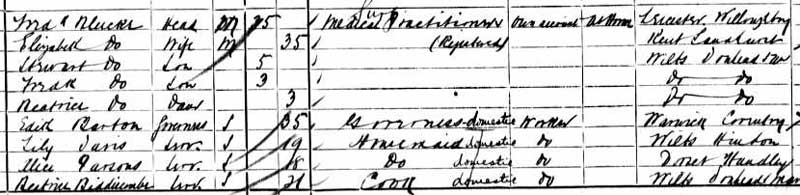 Head M Medical Practitioner Own account At Home Leicester Willoughby
Elizabeth Do Wife M 35 (Registered) Kent Sandhurst
Stewart Do Son 5 Wilts Donhead
Frank Do Son 3 Do Do
Beatrice Do Daur 3 Do Do
Edith Barton Governess S 35 Governess domestic Worker Warwick Coventry
Lily Davis S 19 Housemaid domestic do Wilts Hinton
Alice Parsons S 18 Do domestic do Dorset Handley
Beatrice S 21 Cook domestic do Wilts Donhead